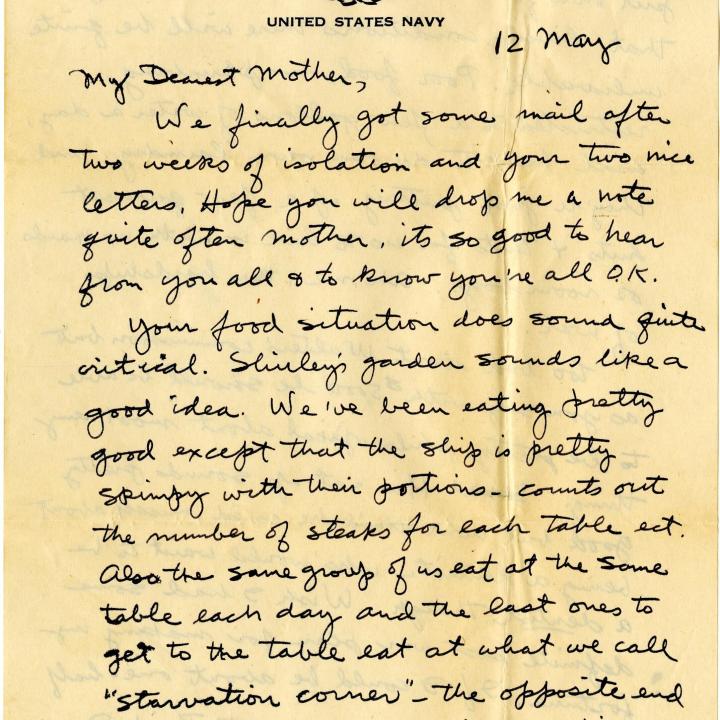 UNITED STATES NAVY
12 May
My Dearest Mother,
We finally got some mail after
two weeks of isolation and your two nice
letters. Hope you will drop me a note
quite often mother, its so good to hear
from you all & to know you're all O.K.
Your food situation does sound quite
critical. Shirley's garden sounds like a
good idea. We've been eating pretty
good except that the ship is pretty
skimpy with their portions - counts out
the number of steaks for each table ect.
Also the same group of us eat at the same
table each day and the last ones to
get to the table eat at what we call
"starvation corner" - the opposite end